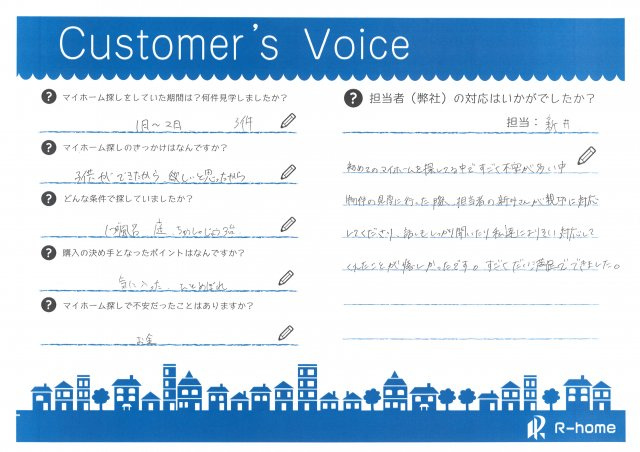 Customer's Voice
? マイホーム探しをしていた期間は？何件見学しましたか？
1月〜2月 3件
? マイホーム探しのきっかけはなんですか？
子供ができたから 欲しいと思ったから
? どんな条件で探していましたか？
お風呂 庭 ちゅうしゃじょう3台
? 購入の決め手となったポイントはなんですか？
気に入った
? マイホーム探しで不安だったことはありますか？
お金
? 担当者（弊社）の対応はいかがでしたか？
担当：新井
初めてのマイホームを探してる中ですごく不安が多い中
物件の見学に行った際、担当者の新井さんが親切に対応
してくださり、話もしっかり聞いたり私達により良い対応して
くれたことが嬉しかったです。すごくだい満足でできました。
R-home